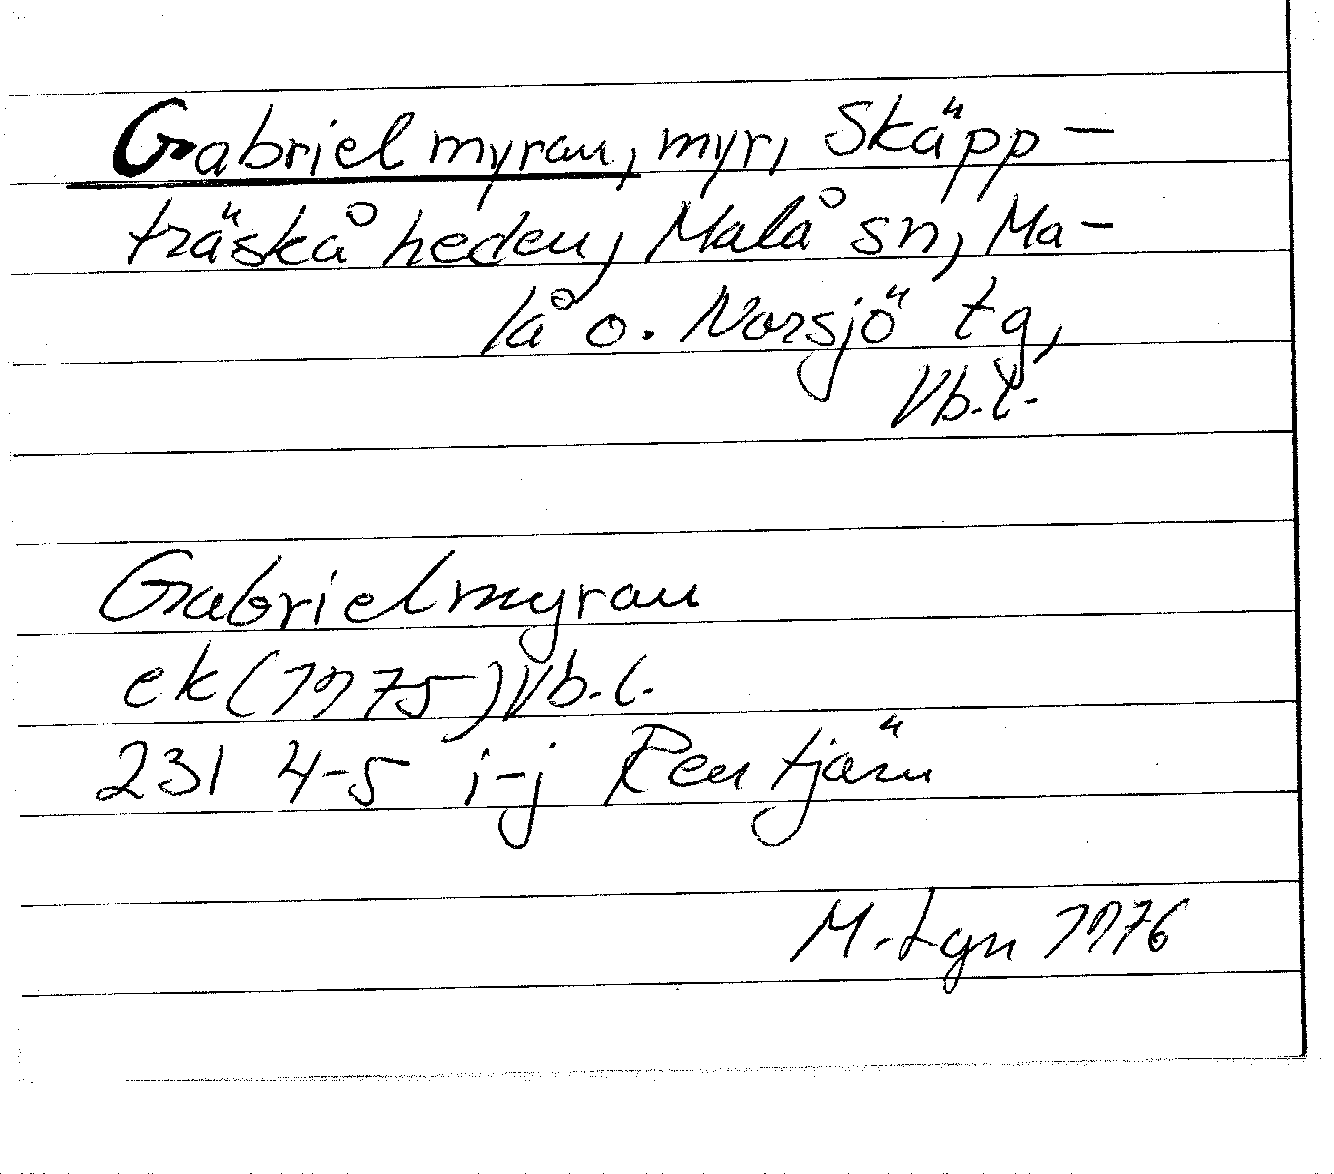 Gabrielmyran, myr, Skäpp-
träskåheden, Malå sn, Ma-
lå o. Norsjö tg,
Vb.l.
Gabrielmyran
ek (1975) Vb.l.
231 4-5 i-j Rentjärn
M. Lgn 1976